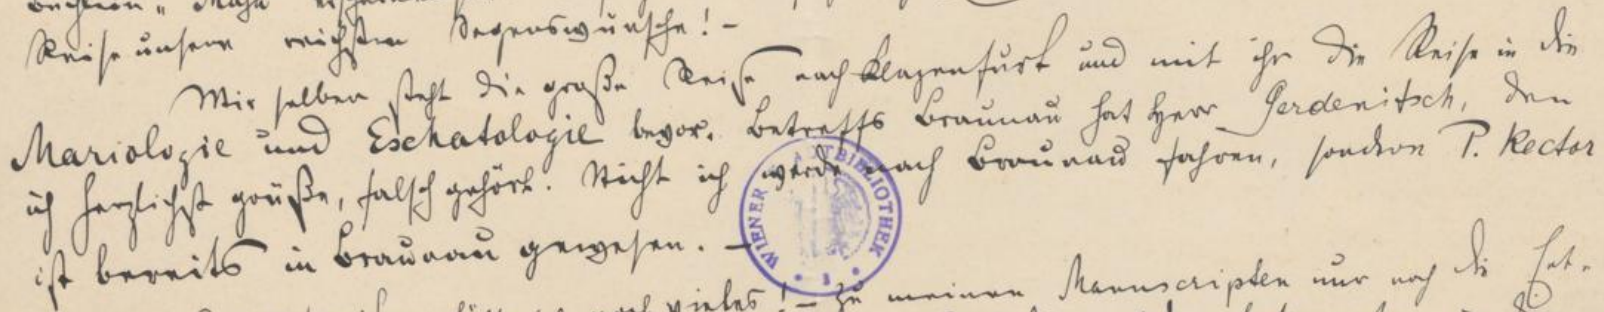 Reise unsere reichsten Segenswünsche! –
Mir selber steht die große Reise nach Klagenfurt und mit ihr die Reise in die
Mariologie und Eschatologie bevor. Betreffs Braunau hat Herr Gerdenitsch, den
ich herzlichst grüße, falsch gehört. Nicht ich werde nach Braunau fahren, sondern P. Rector
ist bereits in Braunau gewesen. –
WIENER STADTBIBLIOTHEK
noch vieles! – Zu meinen Manuscripten nur noch die